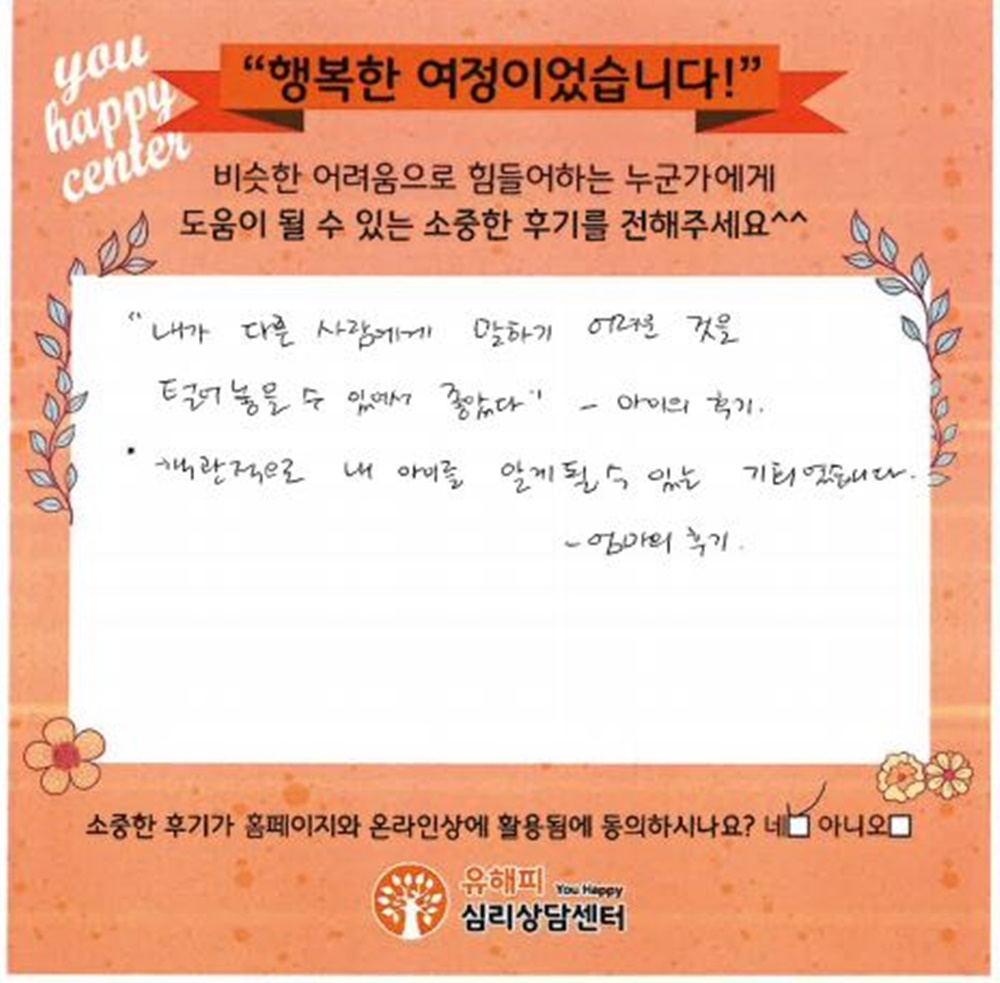 you
happy
center
“행복한 여정이었습니다!”
비슷한 어려움으로 힘들어하는 누군가에게
도움이 될 수 있는 소중한 후기를 전해주세요^^
“내가 다른 사람에게 말하기 어려운 것을
털어놓을 수 있어서 좋았다” - 아이의 후기.
· 객관적으로 내 아이를 알게될 수 있는 기회였습니다.
- 엄마의 후기.
소중한 후기가 홈페이지와 온라인상에 활용됨에 동의하시나요? 네 아니오
유해피 You Happy
심리상담센터